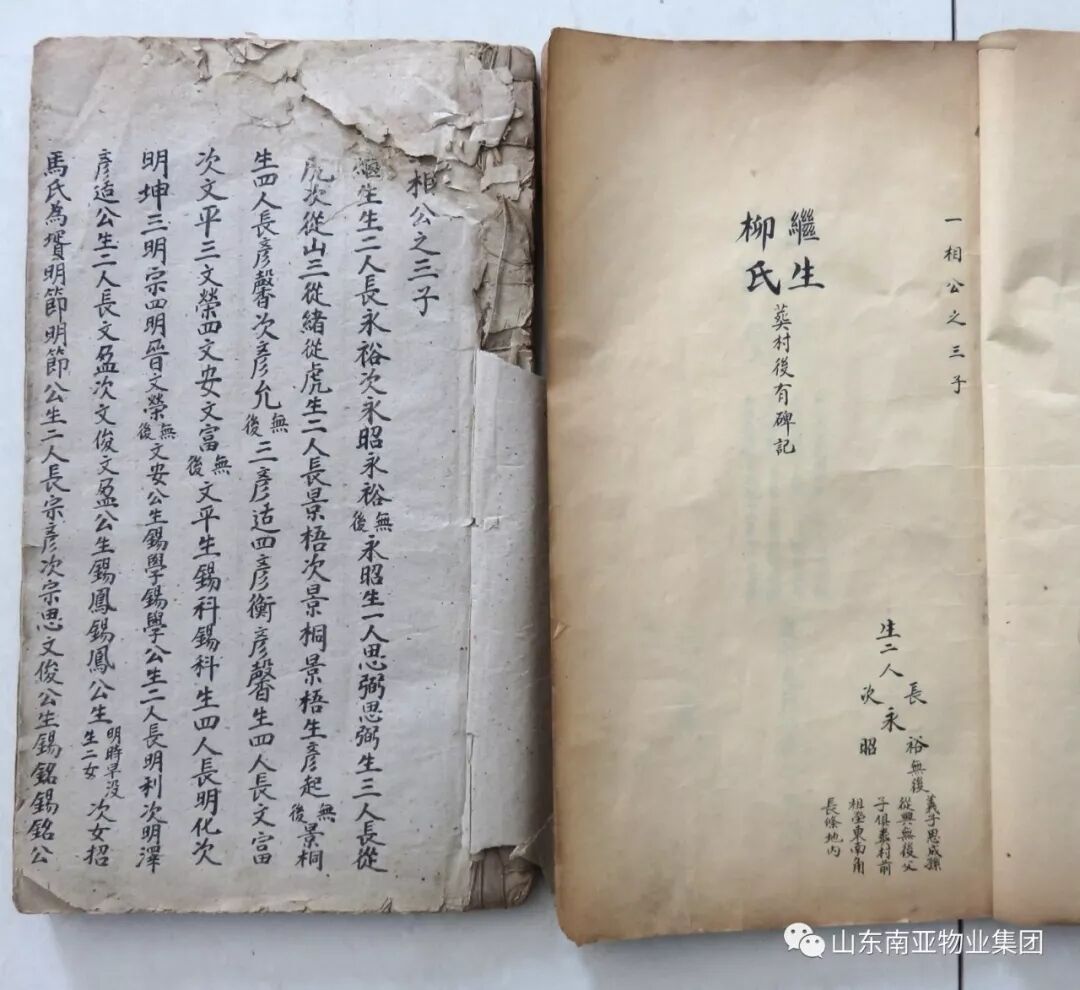 相公之三子
繼生生二人長永裕次永昭永裕無後永昭生一人思弼思弼生三人長從
虎次從山三從緒從虎生二人長景梧次景桐景梧生彥起無後景桐
生四人長彥馨次彥允無後三彥适四彥衡彥馨生四人長文富
次文平三文榮四文安文富無後文平生錫科錫科生四人長明化次
明坤三明宗四明晉文榮無後文安公生錫學錫學公生二人長明利次明澤
彥适公生二人長文盈次文俊文盈公生錫鳳錫鳳公生明時早没生二女次女招
馬氏為壻明節明節公生二人長宗彥次宗思文俊公生錫銘錫銘公
一相公之三子
繼生
柳氏
葬村後有碑記
生二人
長
永裕無後
次
昭
義子思成孫
從興無後父
子俱葬村前
祖塋東南角
長條地内
山东南亚物业集团